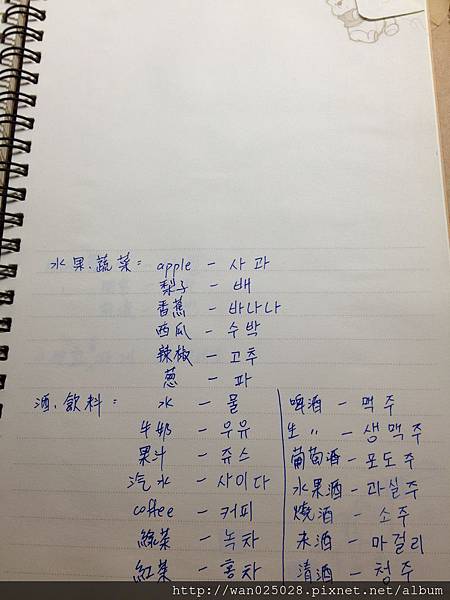 水果.蔬菜: apple - 사과
梨子 - 배
香蕉 - 바나나
西瓜 - 수박
辣椒 - 고추
蔥 - 파
酒.飲料: 水 - 물
牛奶 - 우유
果汁 - 쥬스
汽水 - 사이다
coffee - 커피
綠茶 - 녹차
紅茶 - 홍차
啤酒 - 맥주
生 〃 - 생맥주
葡萄酒 - 포도주
水果酒 - 과실주
燒酒 - 소주
米酒 - 마걸리
清酒 - 청주
http://wan025028.pixnet.net/album